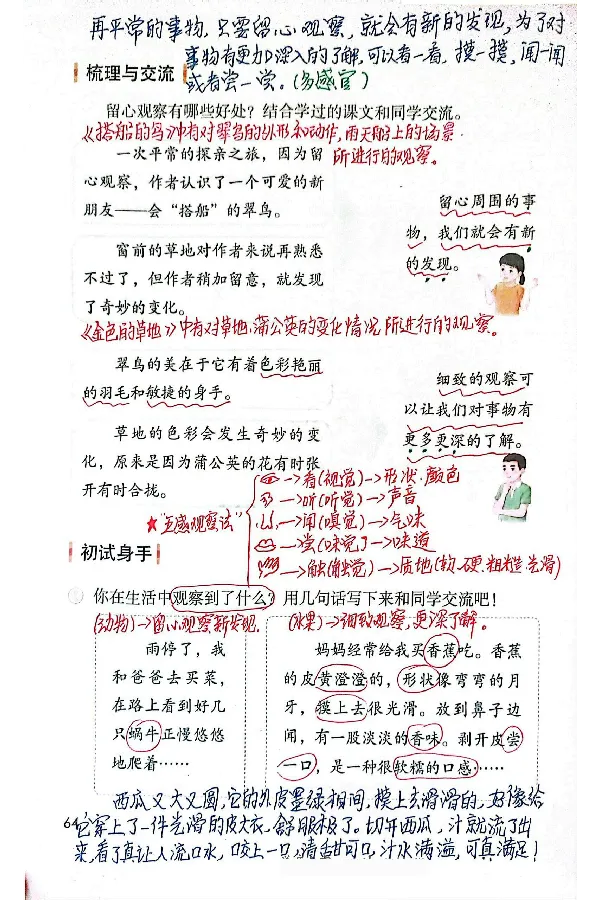 再平常的事物,只要留心观察,就会有新的发现,为了对
事物有更加深入的了解,可以看一看,摸一摸,闻一闻
或者尝一尝。(多感官)
梳理与交流
留心观察有哪些好处?结合学过的课文和同学交流。
《搭船的鸟》中有对翠鸟的外形和动作,雨天船上的场景
所进行的观察。
一次平常的探亲之旅,因为留
心观察,作者认识了一个可爱的新
朋友——会“搭船”的翠鸟。
留心周围的事
物,我们就会有新
的发现。
窗前的草地对作者来说再熟悉
不过了,但作者稍加留意,就发现
了奇妙的变化。
《金色的草地》中有对草地、蒲公英的变化情况所进行的观察。
翠鸟的美在于它有着色彩艳丽
的羽毛和敏捷的身手。
细致的观察可
以让我们对事物有
更多更深的了解。
草地的色彩会发生奇妙的变
化,原来是因为蒲公英的花有时张
开有时合拢。
★“五感观察法”
→看(视觉)→形状、颜色
→听(听觉)→声音
→闻(嗅觉)→气味
→尝(味觉)→味道
→触(触觉)→质地(软、硬、粗糙、光滑)
初试身手
你在生活中观察到了什么?用几句话写下来和同学交流吧!
(动物)→留心观察新发现.
(水果)→细致观察,更深了解。
雨停了,我
和爸爸去买菜,
在路上看到好几
只蜗牛正慢悠悠
地爬着……
妈妈经常给我买香蕉吃。香蕉
的皮黄澄澄的,形状像弯弯的月
牙,摸上去很光滑。放到鼻子边
闻,有一股淡淡的香味。剥开皮尝
一口,是一种很软糯的口感……
西瓜又大又圆,它的外皮墨绿相间,摸上去滑滑的,好像给
它穿上了一件光滑的皮大衣,舒服极了。切开西瓜,汁就流了出
来,看了真让人流口水,咬上一口,清甜可口,汁水满溢,可真满足!
64